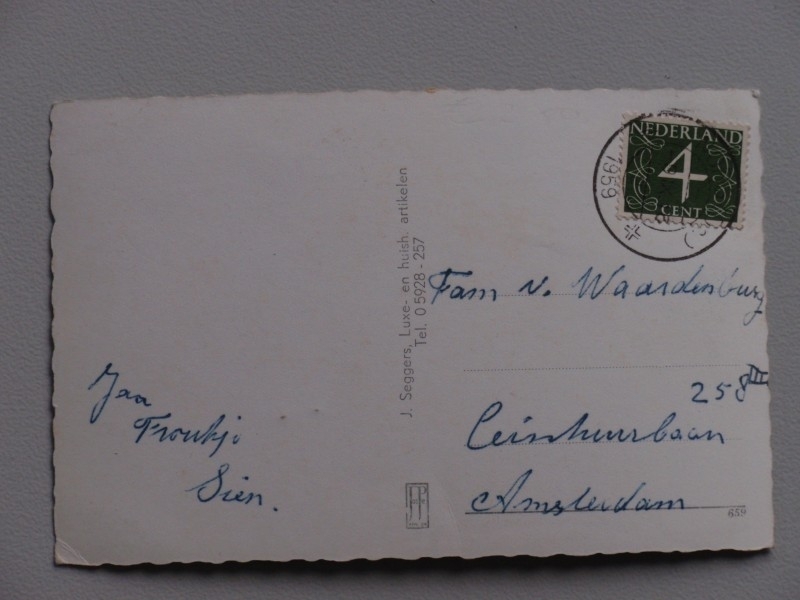 NEDERLAND
4
CENT
1959
J. Seggers, Luxe- en huish. artikelen
Tel. 0 5928 - 257
Fam v. Waardenburg
258 III
Ceintuurbaan
Amsterdam
Jaa
Froukje
Sien.
659